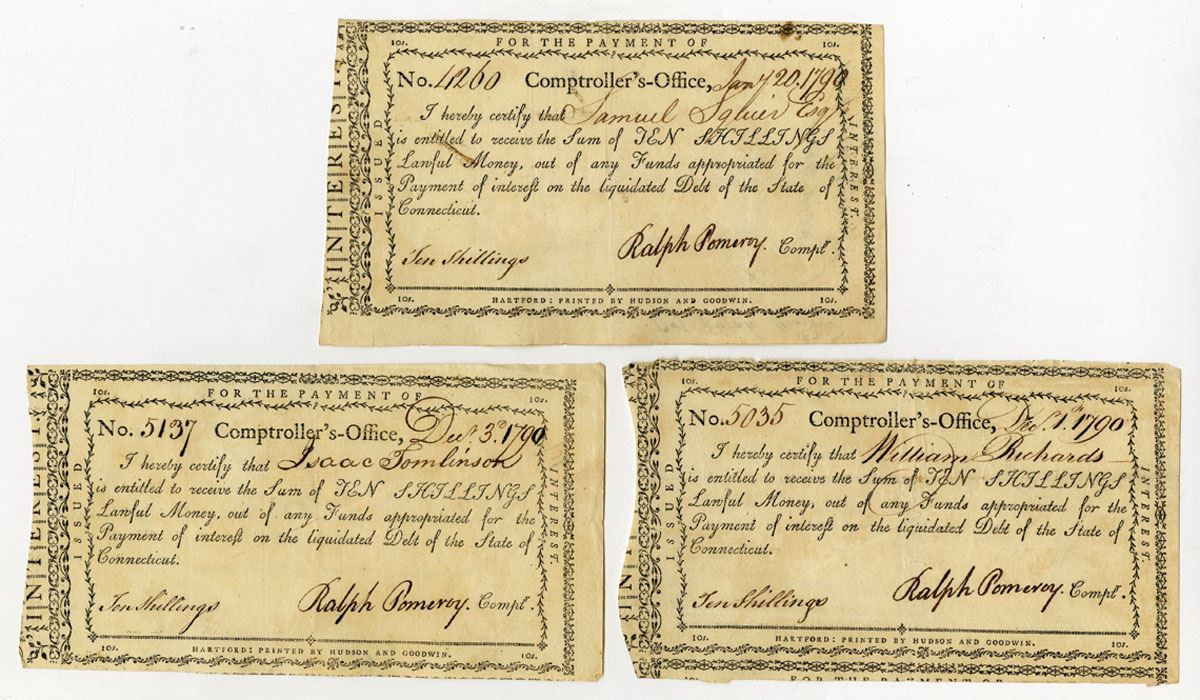 10s. FOR THE PAYMENT OF 10s.
No. 4260 Comptroller's-Office, Jany 20. 1790
I hereby certify that Samuel Squier Esqr
is entitled to receive the Sum of TEN SHILLINGS
Lawful Money, out of any Funds appropriated for the
Payment of interest on the liquidated Debt of the State of
Connecticut.
Ten Shillings Ralph Pomeroy. Comptr.
10s. HARTFORD: PRINTED BY HUDSON AND GOODWIN. 10s.
INTEREST
ISSUED
INTEREST.
10s. FOR THE PAYMENT OF 10s.
No. 5137 Comptroller's-Office, Decr. 3d. 1790
I hereby certify that Isaac Tomlinson
is entitled to receive the Sum of TEN SHILLINGS
Lawful Money, out of any Funds appropriated for the
Payment of interest on the liquidated Debt of the State of
Connecticut.
Ten Shillings Ralph Pomeroy. Comptr.
10s. HARTFORD: PRINTED BY HUDSON AND GOODWIN. 10s.
INTEREST
ISSUED
INTEREST.
10s. FOR THE PAYMENT OF 10s.
No. 5035 Comptroller's-Office, 1790
I hereby certify that William Richards
is entitled to receive the Sum of TEN SHILLINGS
Lawful Money, out of any Funds appropriated for the
Payment of interest on the liquidated Debt of the State of
Connecticut.
Ten Shillings Ralph Pomeroy. Comptr.
10s. HARTFORD: PRINTED BY HUDSON AND GOODWIN. 10s.
ISSUED
INTEREST.
FOR THE PAYMENT OF